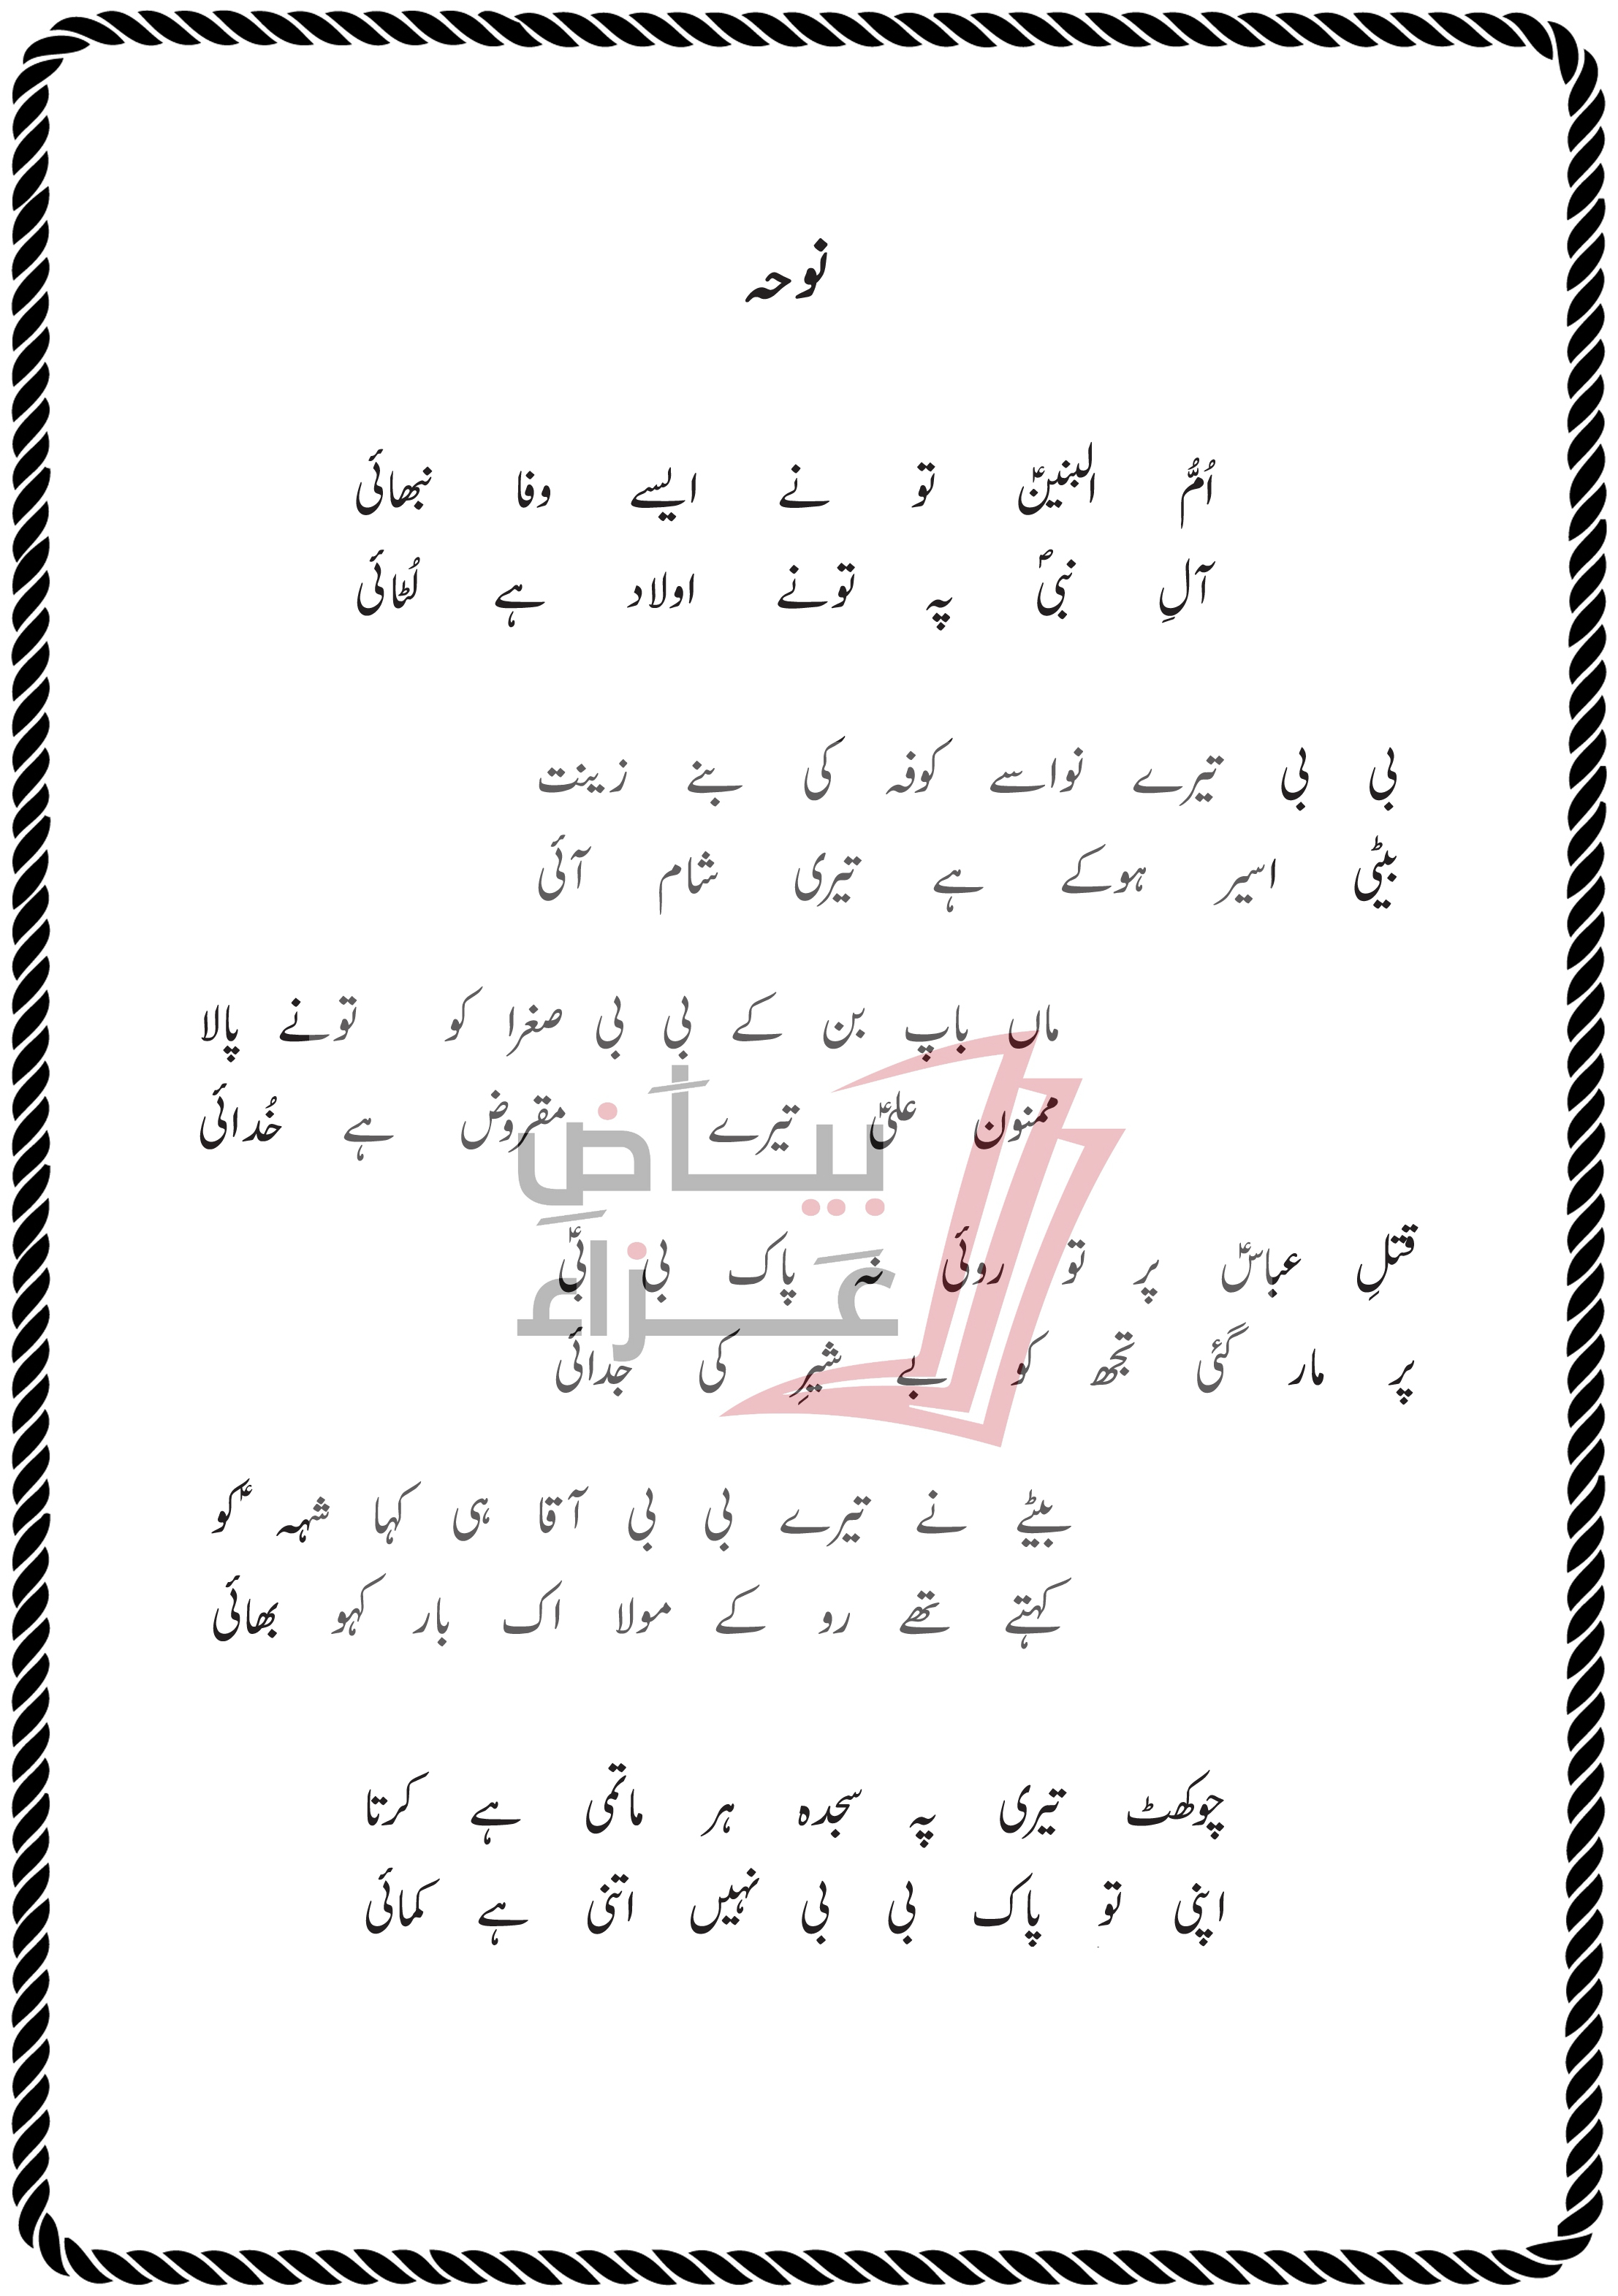 نوحہ
اُمُّ البنینؑ تو نے ایسے وفا نبھائی
آلِ نبیؐ پہ تونے اولاد ہے لُٹائی
بی بی تیرے نواسے کوفہ کی بنے زینت
بیٹی اسیر ہوکے ہے تیری شام آئی
ماں باپ بن کے بی بی صغرا کو تونے پالا
ممنون علیؑ تیرے مقروض ہے خُدائی
بیاض
عزاء
قتلِ عباسؑ پر تو روئی نہ پاک بی بیؑ
پر مار گئی تجھ کو بے شیرِ کی جدائی
بیٹے نے تیرے بی بی آقا ہی کہا شہہ ؑکو
کہتے تھے رو کے مولا اک بار کہو بھائی
چوکھٹ تیری پہ سجدہ ہر ماتمی ہے کرتا
اپنی تو پاک بی بی نہیں اتنی ہے کمائی